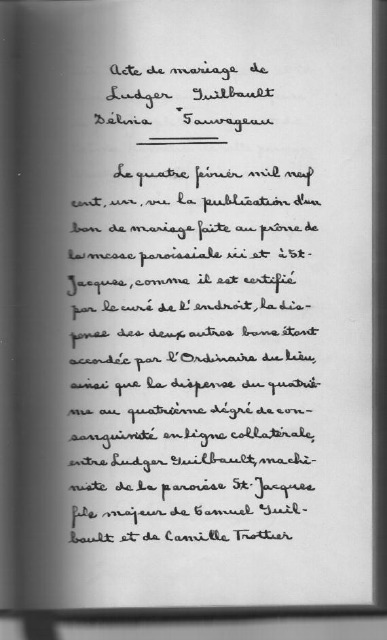 Acte de mariage de
Ludger Guilbault
Délvia Sauvageau
Le quatre février mil neuf
cent, un, vu la publication d'un
ban de mariage faite au prône de
la messe paroissiale ici et à St-
Jacques, comme il est certifié
par le curé de l'endroit, la dis-
pense des deux autres bans étant
accordée par l'Ordinaire du lieu,
ainsi que la dispense du quatriè-
me au quatrième dégré de con-
sanguinité en ligne collatérale,
entre Ludger Guilbault, machi-
niste de la paroisse St-Jacques
fils majeur de Samuel Guil-
bault et de Camille Trottier